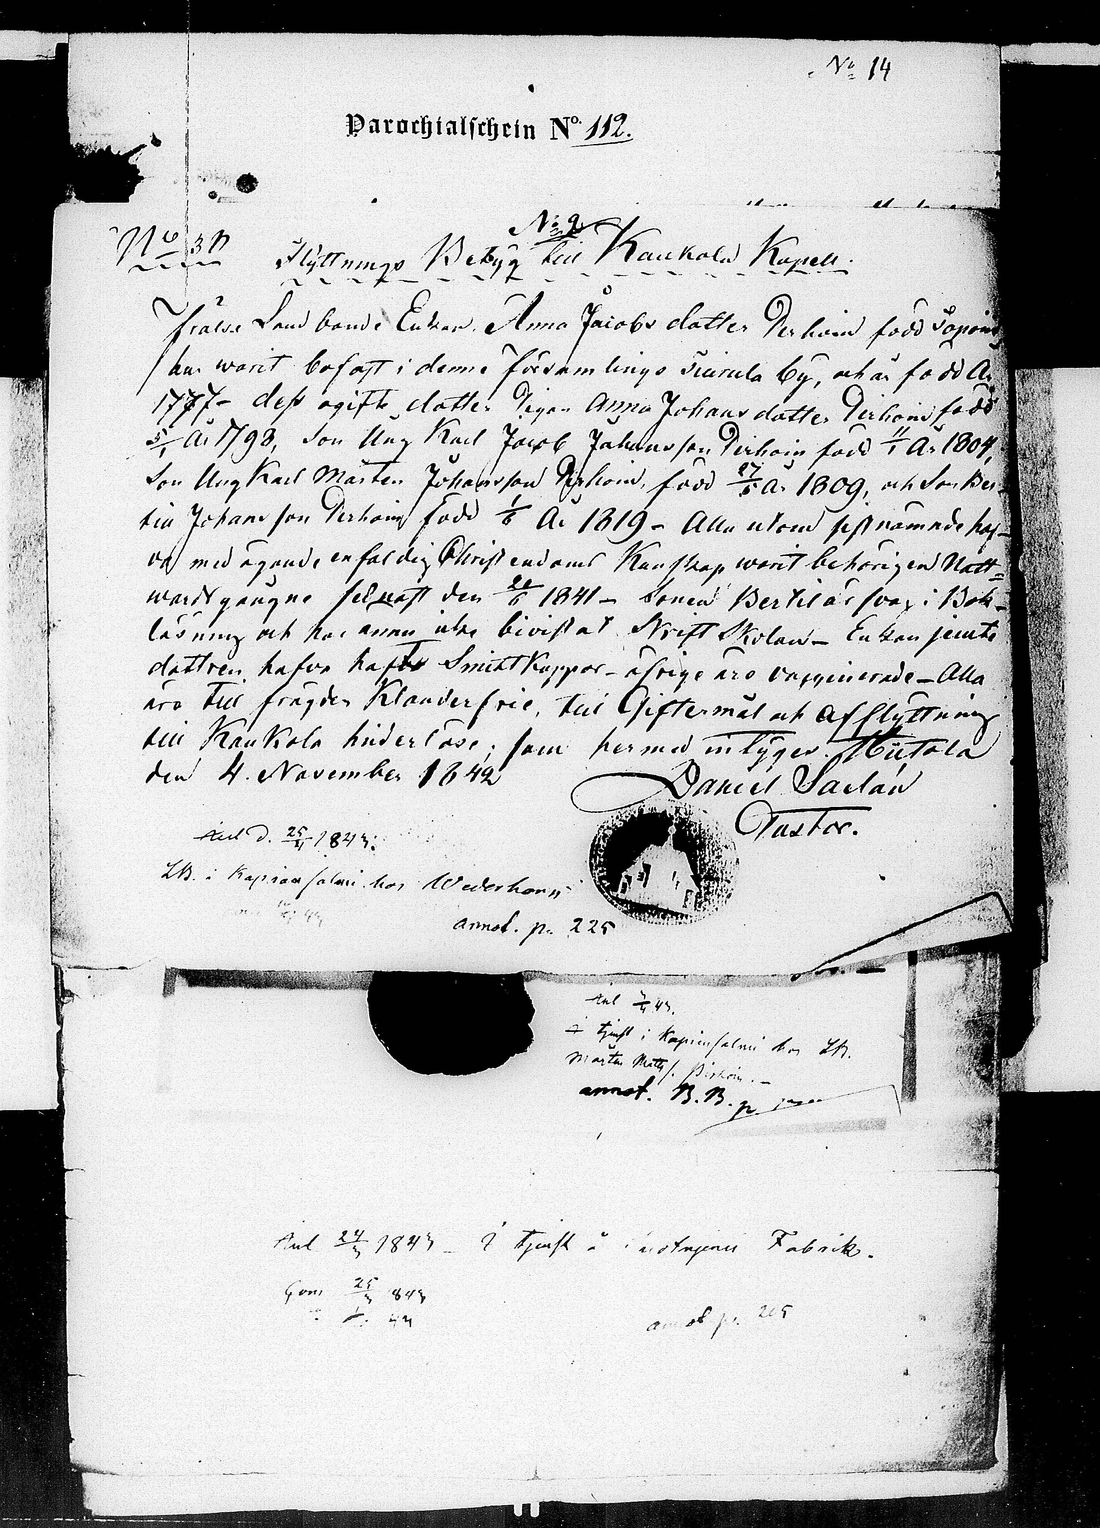 No 14
Parochialschein No. 112.
No 2
No 37
Flyttnings Betyg till Kaukola Kapell.
Frälse Landbonde Enkan Anna Jacobs dotter Pirhoin född Saponi
har warit bofast i denne församlings Tiurula by, och är född År
1777 - dess ogifte dotter Pigan Anna Johans dotter Pirhoin född
5/1 År 1798, Son Ung Karl Jacob Johansson Pirhoin född 11/1 År 1804,
Son Ung Karl Mårten Johansson Pirhoin, född 27/5 År 1809, och Son Ber-
til Johansson Pirhoin född 1/6 År 1819 - Alla utom sistnämnde haf-
va med ägande enfaldig Christendoms Kunskap warit behörigen Natt-
wards gångne senast den 20/6 1841 - Sonen Bertil är svag i Bok-
läsning och har annu icke bivistat Skrift Skolan - Enkan jemte
dottren hafva haft Smittkoppor - öfrige äro vaccinerade - Alla
äro till frägder Klanderfrie, till Giftermål och Afflyttning
till Kaukola hinderlöse; som hermed intygar. Hiitola
den 4. November 1842
Daniel Saxlán
Pastor.
Anl d. 25/4 1843.
LB. i Kapiansalmi hos Wederhorn
annot. p. 225
Anl 7/4 43.
i tjenst i Kapiansalmi hos LB.
Mårten Matts. Pirhoin. -
annot. B.B. p.
Anl 24/3 1843 - i tjenst å Fabrik.
25/3 843
44
annot p. 205